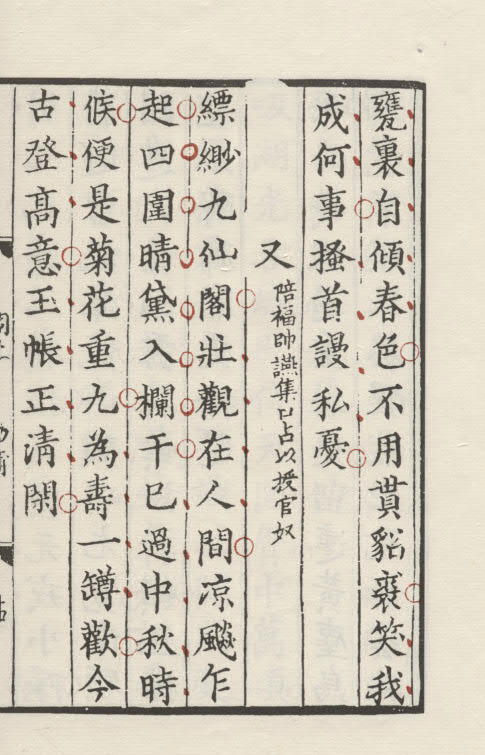 甕裏自傾春色不用貰貂裘笑我
成何事搔首謾私憂
又 陪福帥讌集口占以授官奴
縹緲九仙閣壯觀在人間凉飈乍
起四圍晴黛入欄干已過中秋時
候便是菊花重九為壽一罇歡今
古登髙意玉帳正淸閑